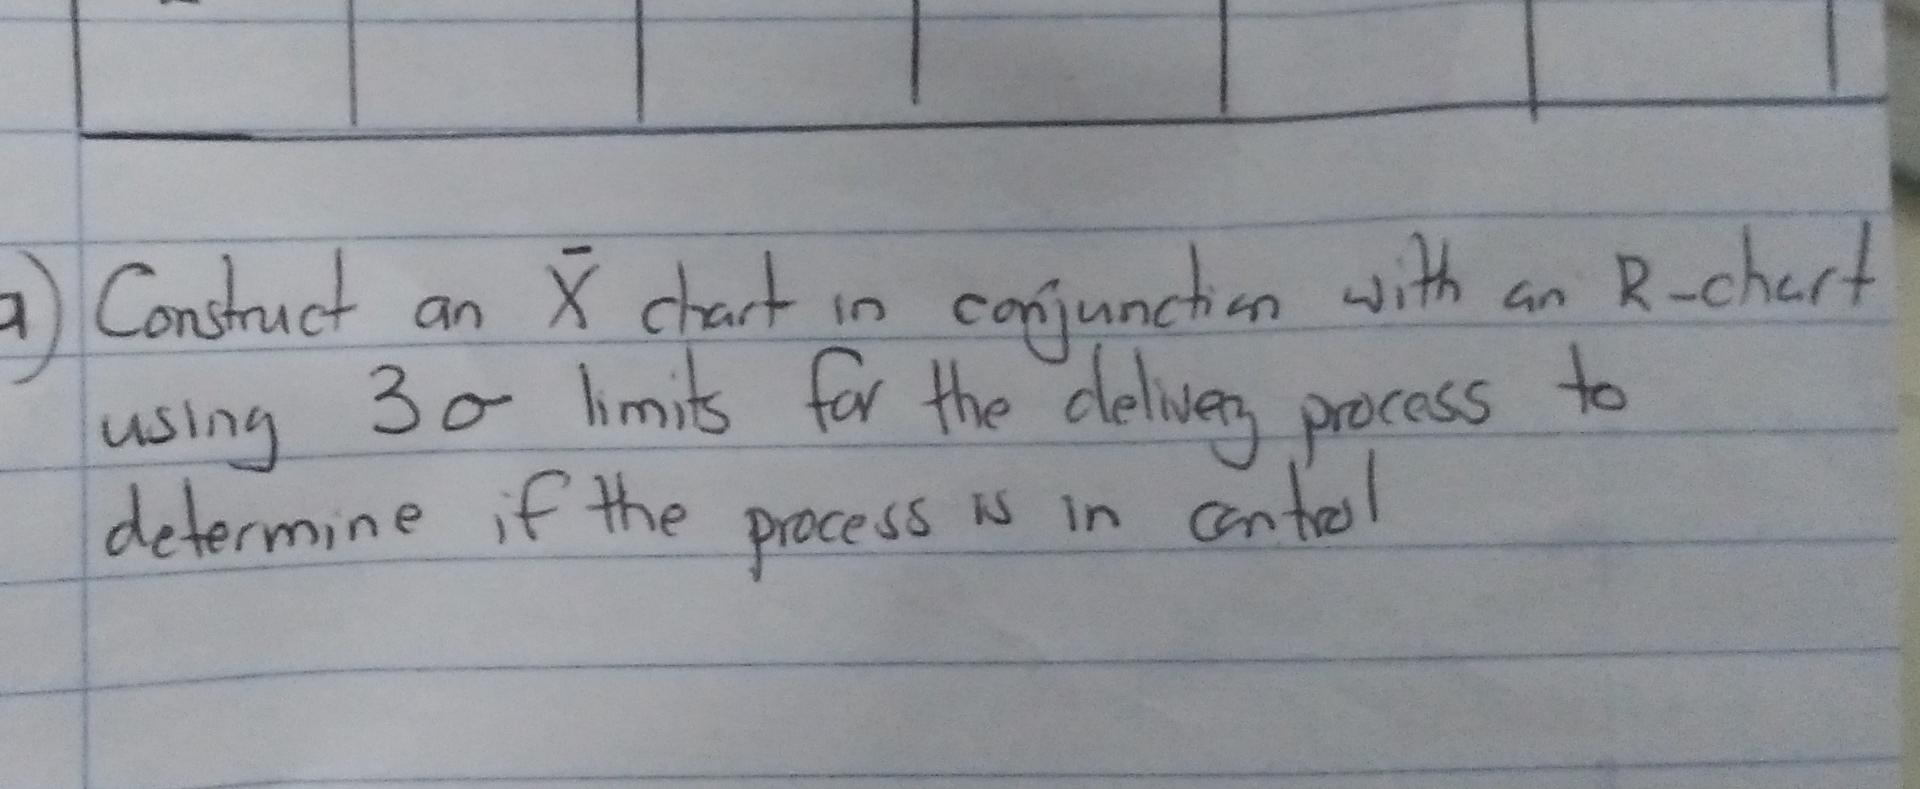 a) Construct an X̄ chart in conjunction with an R-chart
using 3σ limits for the delivery process to
determine if the process is in control